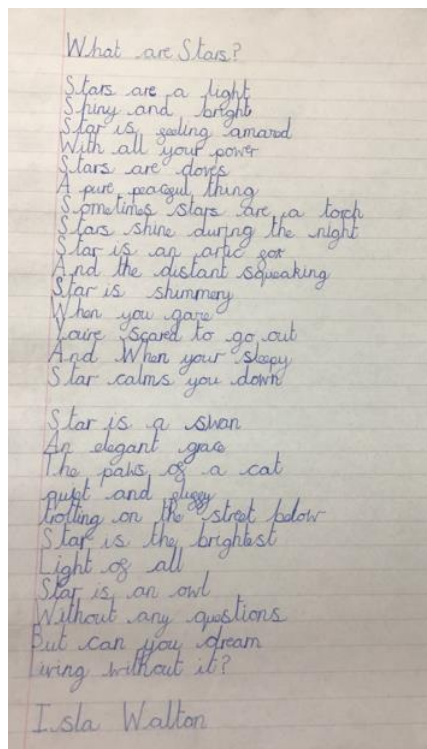 What are Stars?
Stars are a light
Shiny and bright
Star is feeling amazed
With all your power
Stars are doves
A pure peaceful thing
Sometimes stars are a torch
Stars shine during the night
Star is an artic fox
And the distant squeaking
Star is shimmery
When you gaze
You're scared to go out
And When your sleepy
Star calms you down
Star is a swan
An elegant grace
The paws of a cat
quiet and fluffy
trotting on the street below
Star is the brightest
Light of all
Star is an owl
Without any questions
But can you dream
Living without it?
Isla Walton